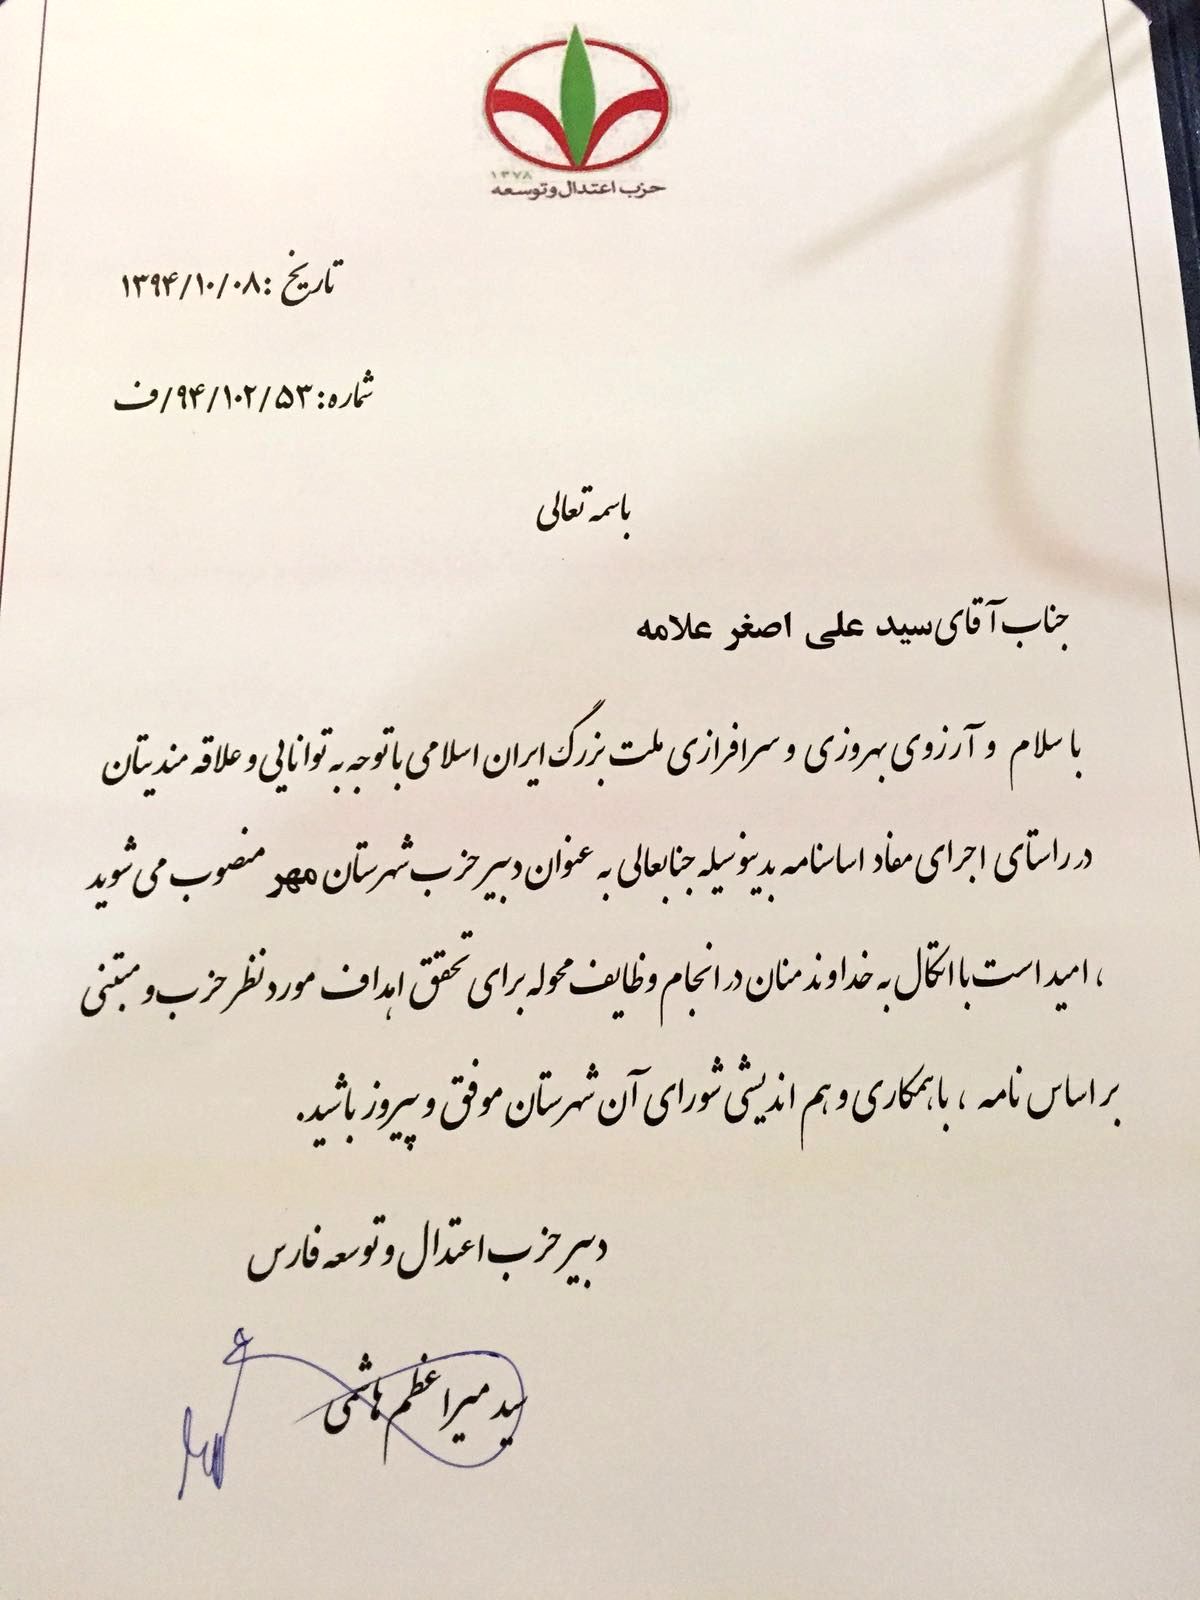 ۱۳۷۸
حزب اعتدال و توسعه
تاریخ : ۱۳۹۴/۱۰/۰۸
شماره: ۹۴/۱۰۲/۵۳/ف
باسمه تعالی
جناب آقای سید علی اصغر علامه
با سلام و آرزوی بهروزی و سرافرازی ملت بزرگ ایران اسلامی با توجه به توانایی و علاقه مندیتان
در راستای اجرای مفاد اساسنامه بدینوسیله جنابعالی به عنوان دبیر حزب شهرستان مهر منصوب می شوید
، امید است با اتکال به خداوند منان در انجام وظایف محوله برای تحقق اهداف مورد نظر حزب و مبتنی
بر اساس نامه ، با همکاری و هم اندیشی شورای آن شهرستان موفق و پیروز باشید.
دبیر حزب اعتدال و توسعه فارس
سید میراعظم هاشمی